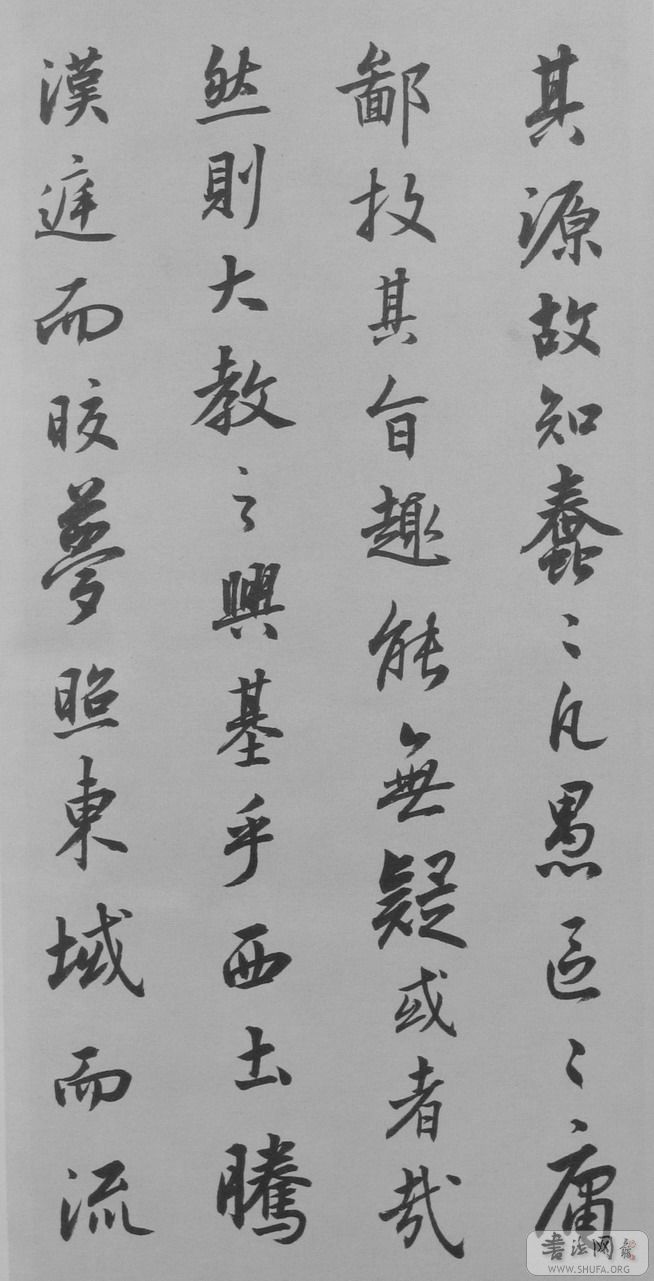 其源故知蠢〻凡愚區〻庸
鄙投其旨趣能無疑或者哉
然則大教之興基乎西土騰
漢庭而晈夢照東域而流
書法网
WWW.SHUFA.ORG